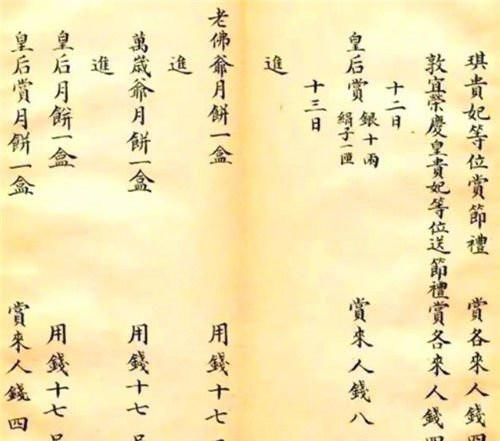 琪貴妃等位賞節禮 賞各來人錢四
敦宜榮慶皇貴妃等位送節禮賞各來人錢四
十二日
皇后賞 銀十兩 絹子一匣 賞來人錢八
十三日
進
老佛爺月餅一盒 用錢十七
進
萬歲爺月餅一盒 用錢十七
進
皇后月餅一盒 用錢十七
皇后賞月餅一盒 賞來人錢四